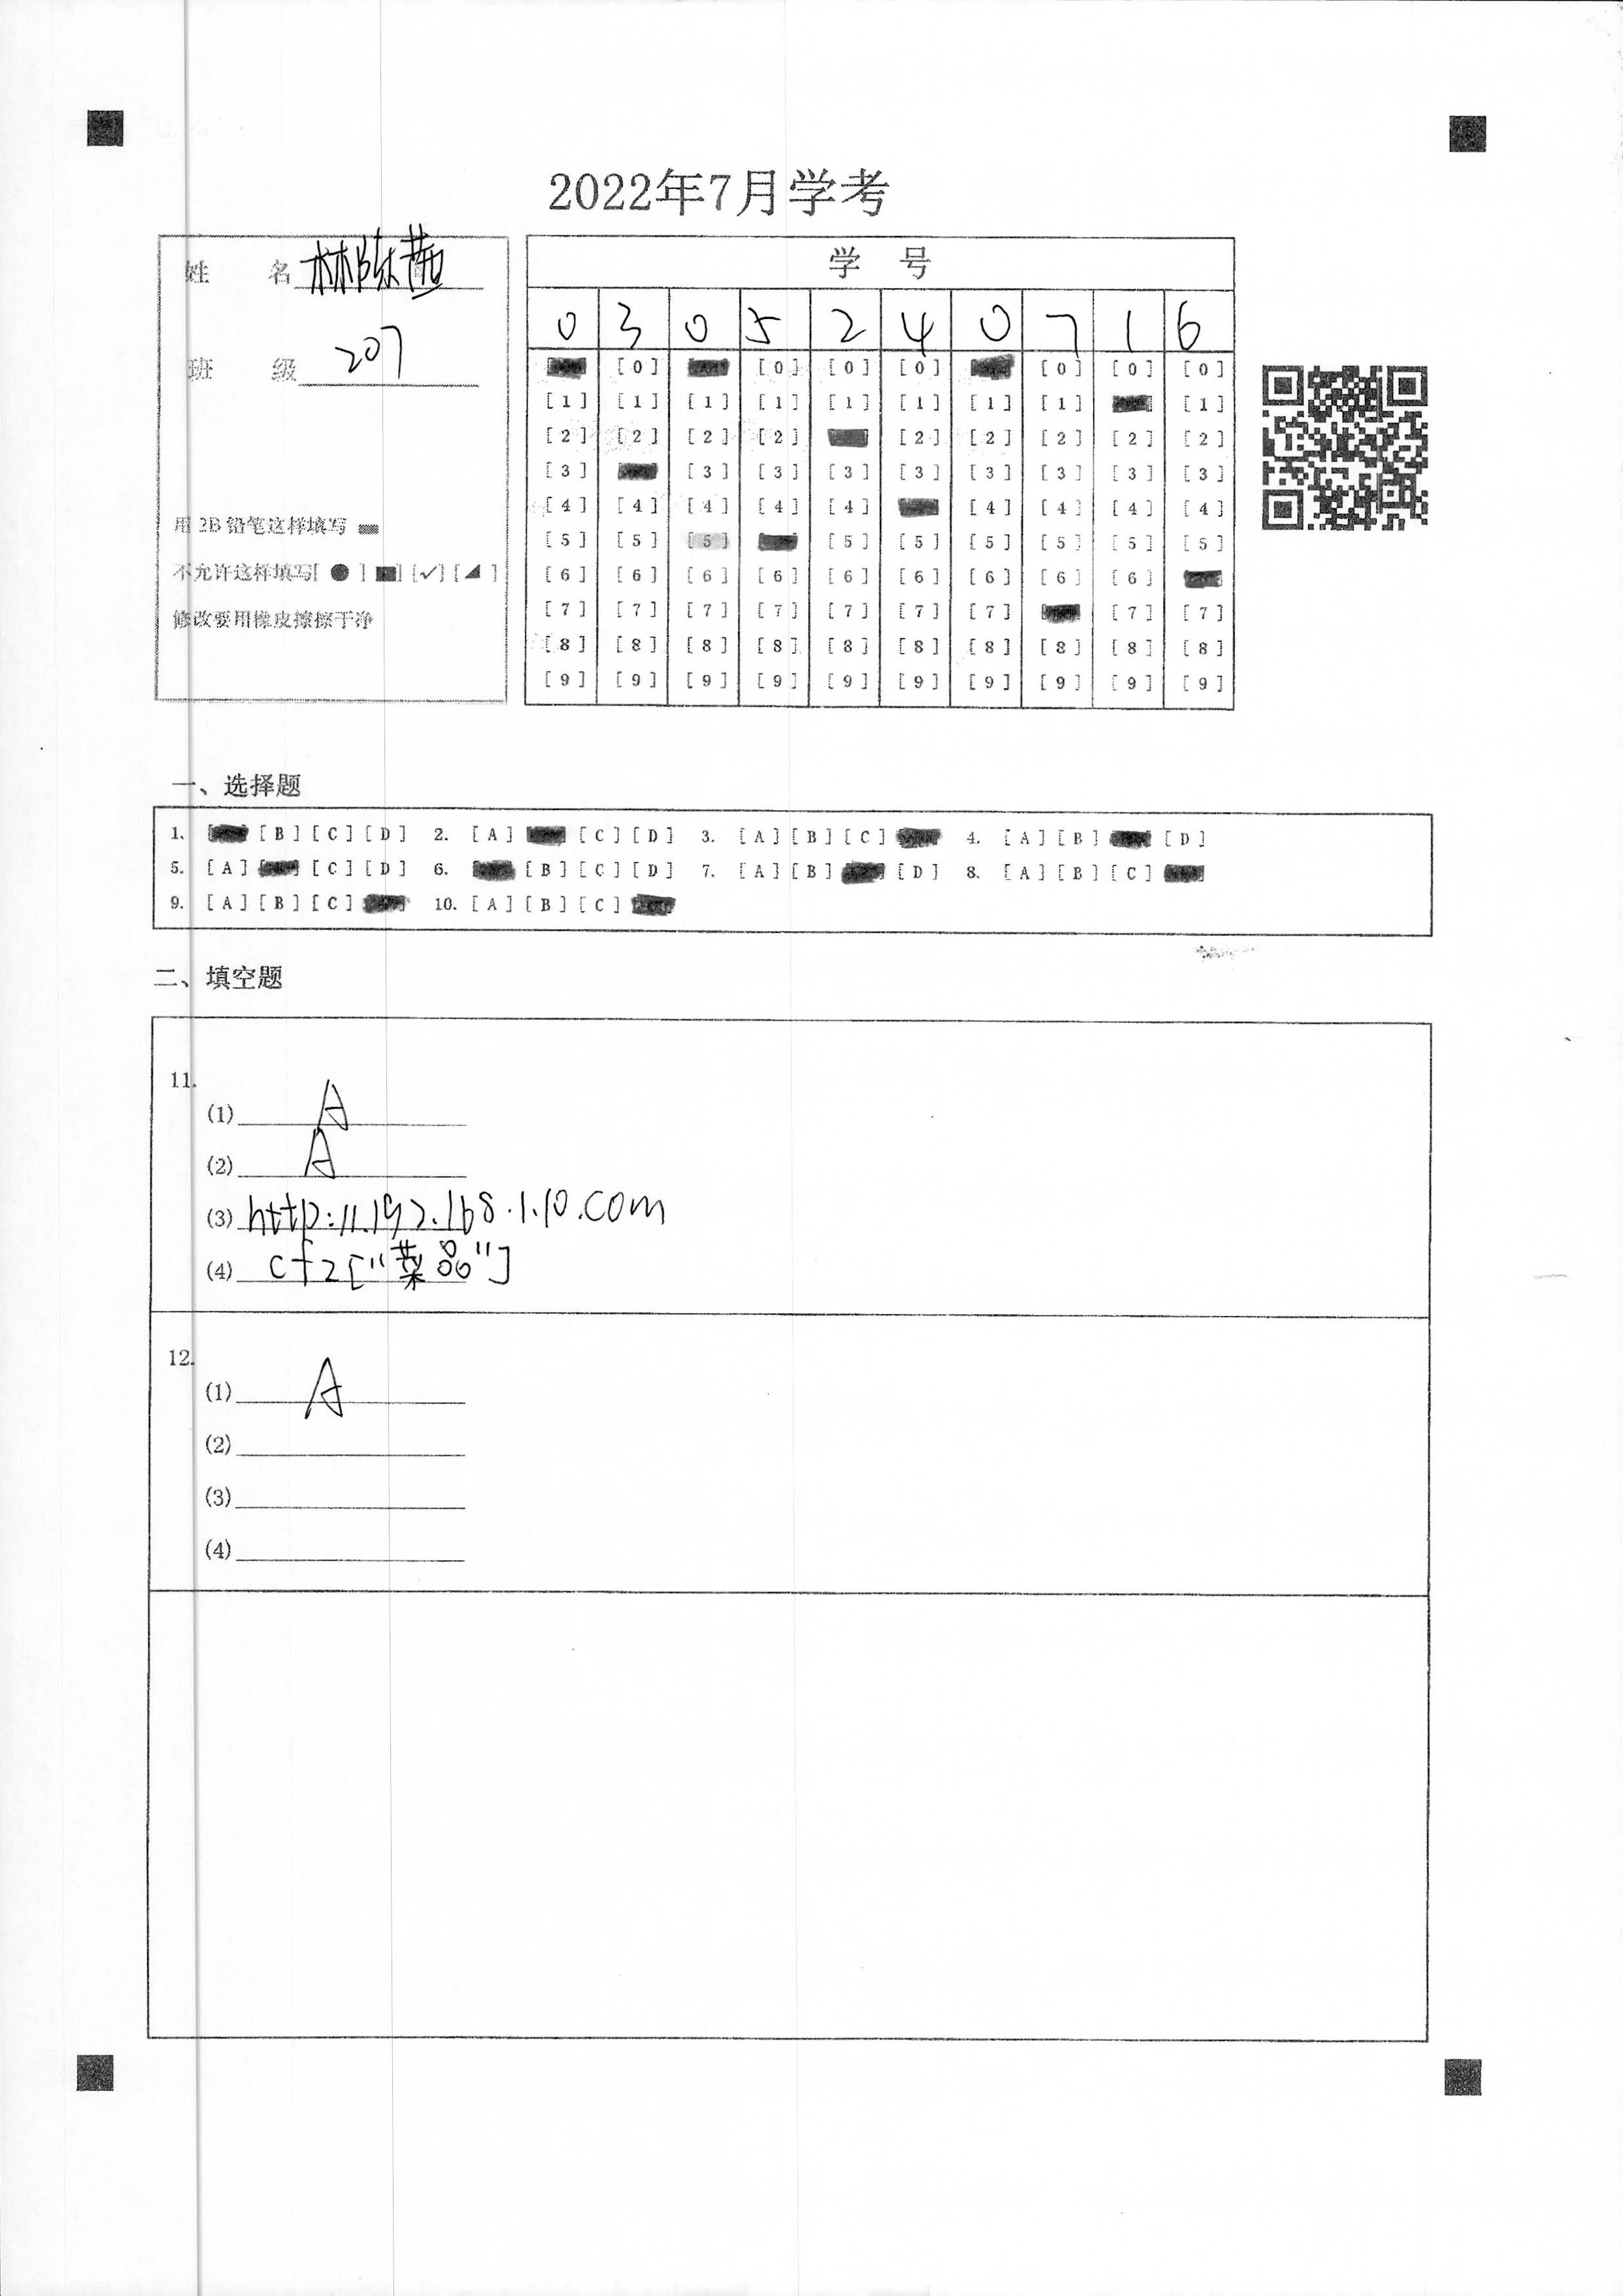 2022年7月学考
姓 名 林陈茜
班 级 207
用 2B 铅笔这样填写
不允许这样填写[ ● ] [■] [✓] [◢ ]
修改要用橡皮擦擦干净
学 号
0 3 0 5 2 4 0 7 1 6
[0] [0] [0] [0] [0] [0]
[1] [1] [1] [1] [1] [1] [1] [1] [1]
[2] [2] [2] [2] [2] [2] [2] [2] [2]
[3] [3] [3] [3] [3] [3] [3] [3] [3]
[4] [4] [4] [4] [4] [4] [4] [4] [4]
[5] [5] [5] [5] [5] [5] [5] [5] [5]
[6] [6] [6] [6] [6] [6] [6] [6] [6]
[7] [7] [7] [7] [7] [7] [7] [7] [7]
[8] [8] [8] [8] [8] [8] [8] [8] [8] [8]
[9] [9] [9] [9] [9] [9] [9] [9] [9] [9]
一、选择题
1. [B] [C] [D] 2. [A] [C] [D] 3. [A] [B] [C] 4. [A] [B] [D]
5. [A] [C] [D] 6. [B] [C] [D] 7. [A] [B] [D] 8. [A] [B] [C]
9. [A] [B] [C] 10. [A] [B] [C]
二、填空题
11.
(1) A
(2) A
(3) http://.192.168.1.10.com
(4) cf2["菜品"]
12.
(1) A
(2)
(3)
(4)